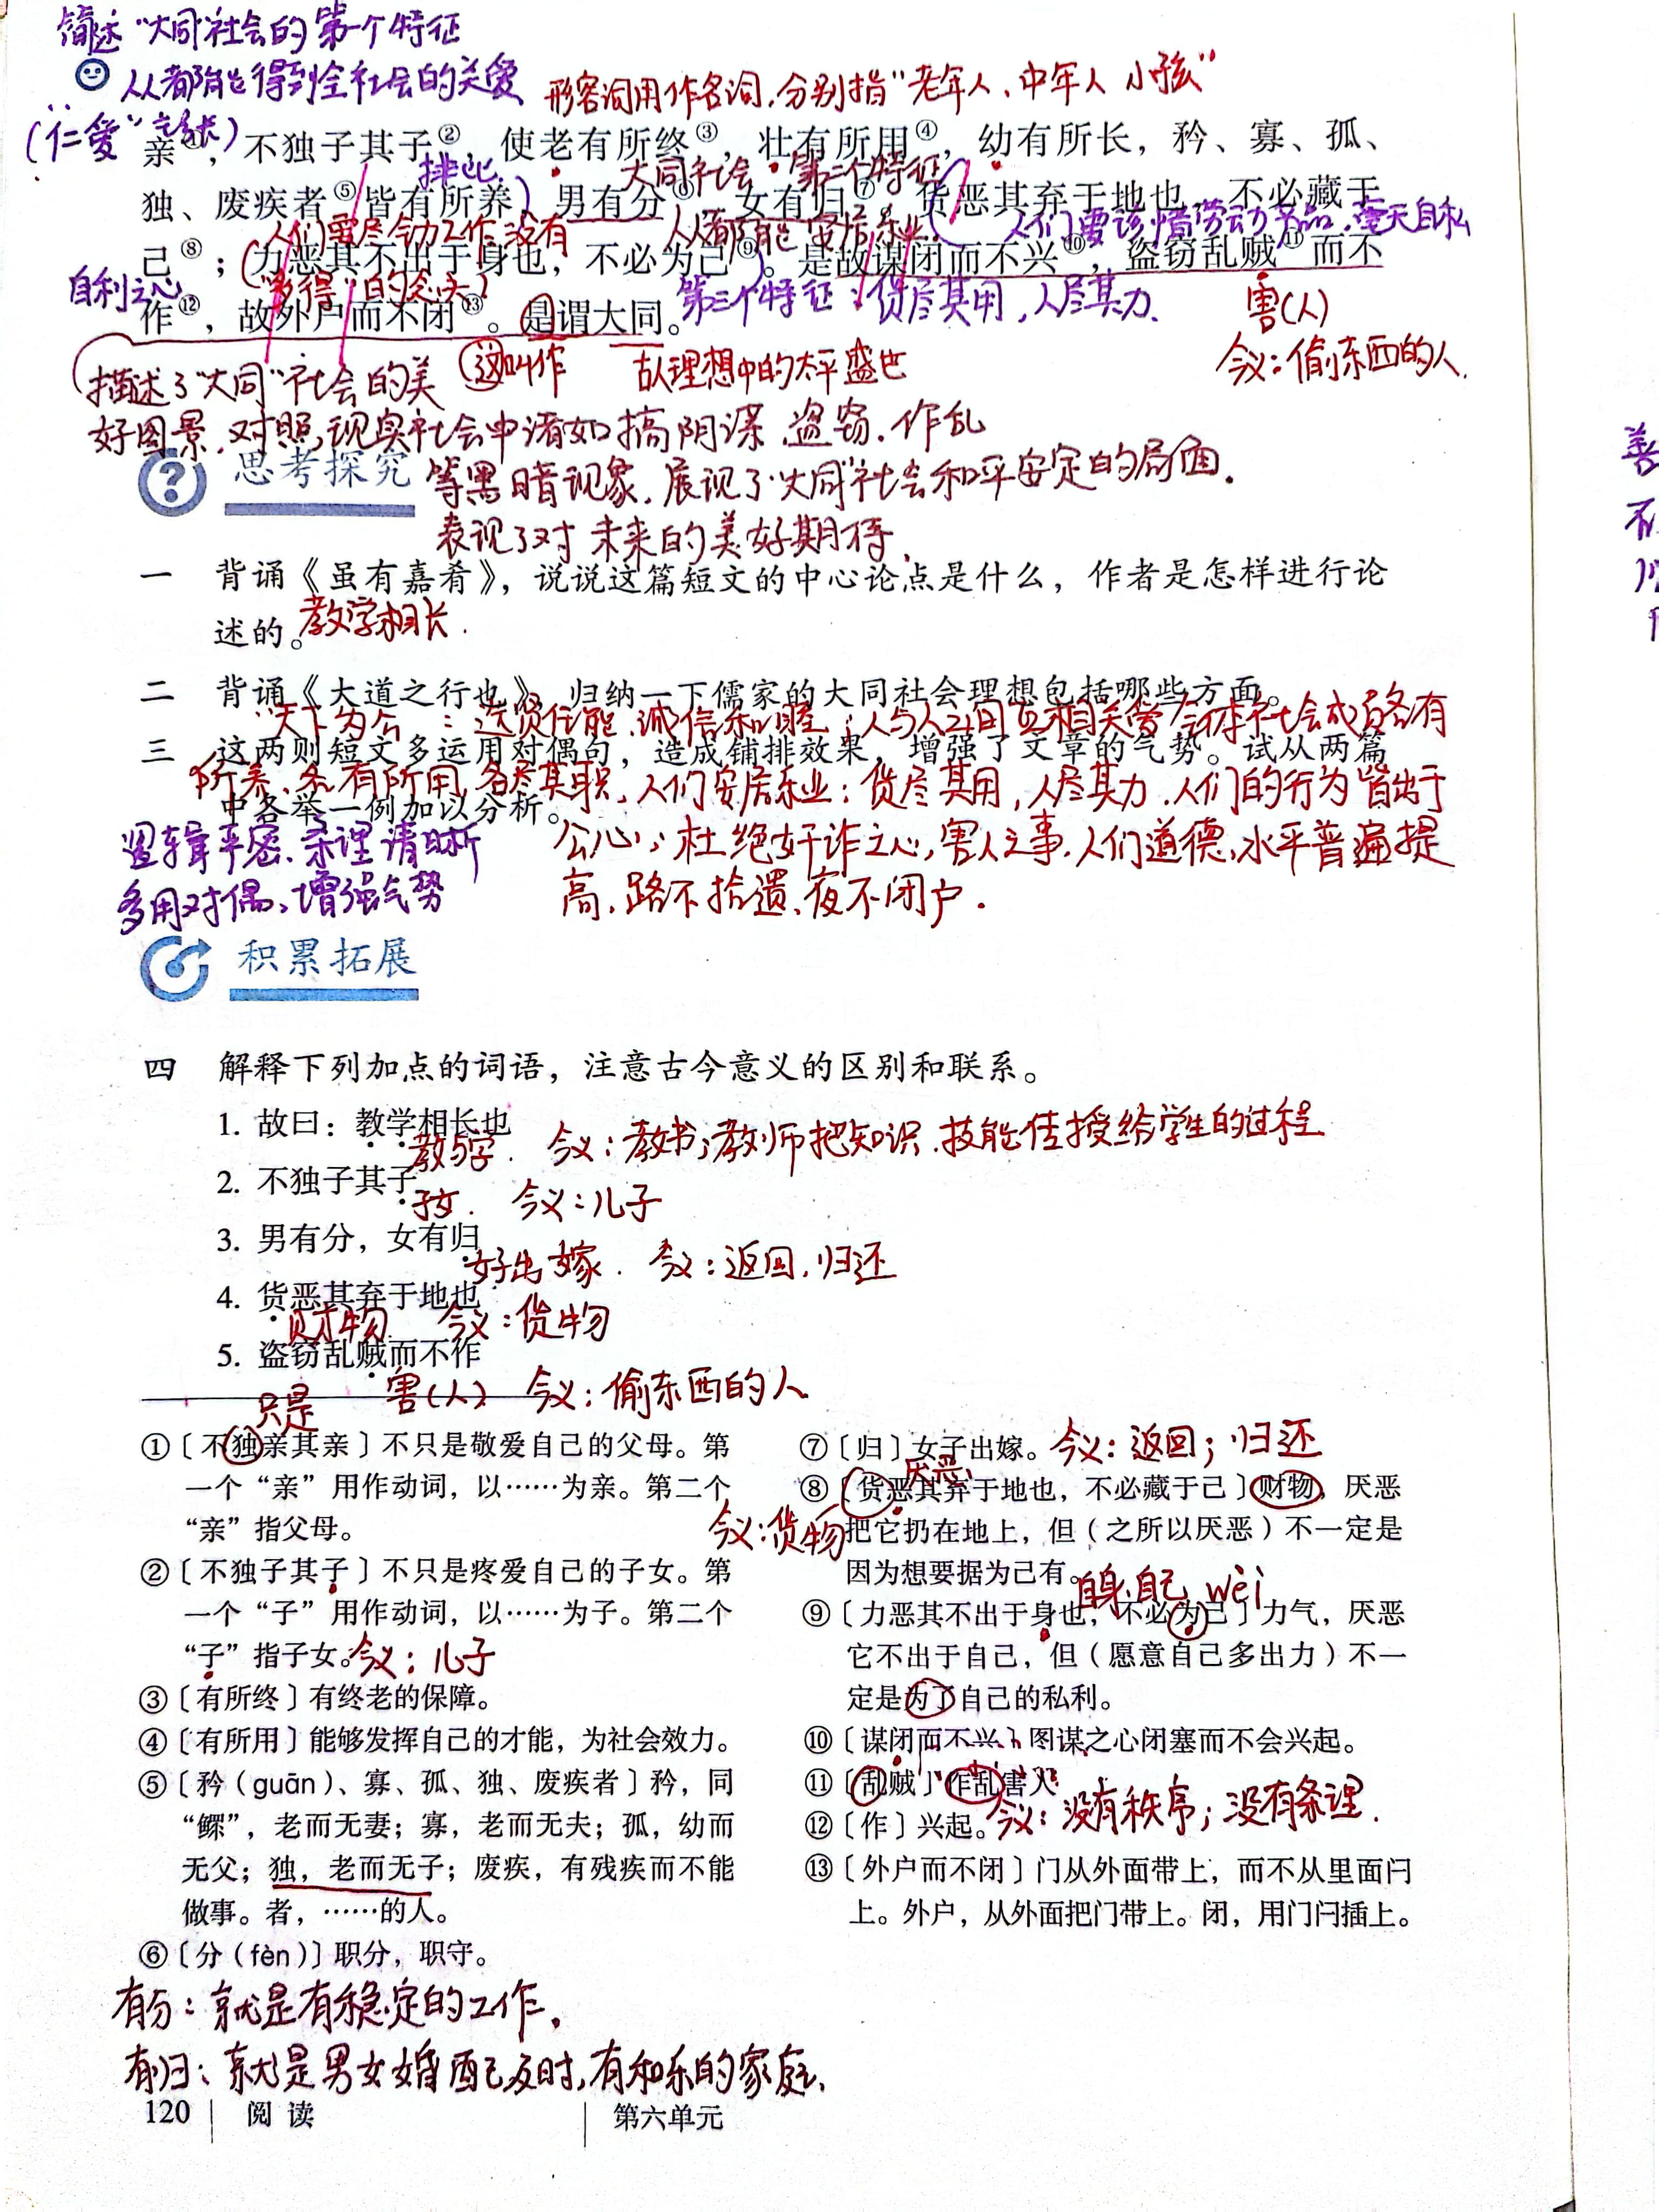 简述“大同”社会的第一个特征
人人都能得到全社会的关爱
形容词用作名词，分别指“老年人、中年人 小孩”
（“仁爱”
亲①，不独子其子②，使老有所终③，壮有所用④，幼有所长，矜、寡、孤、
排比
大同社会 第二个特征
独、废疾者⑤皆有所养，男有分⑥，女有归⑦。货恶其弃于地也，不必藏于
人们要尽全力工作，没有
人人都能安居乐业
人们要该惜劳动产品，毫无自私
己⑧；力恶其不出于身也，不必为己⑨。是故谋闭而不兴⑩，盗窃乱贼⑪而不
自利之心
“多得”的念头
第三个特征：货尽其用，人尽其力.
害(人)
作⑫，故外户而不闭⑬。是谓大同。
今义：偷东西的人.
这叫作
古人理想中的太平盛世
描述了“大同”社会的美
好图景，对照现实社会中诸如搞阴谋、盗窃、作乱
思考探究
等黑暗现象，展现了“大同”社会和平安定的局面.
表现了对未来的美好期待.
一 背诵《虽有嘉肴》，说说这篇短文的中心论点是什么，作者是怎样进行论
述的。教学相长.
二 背诵《大道之行也》，归纳一下儒家的大同社会理想包括哪些方面。
“天下为公”：选贤任能、诚信和睦；人与人之间互相关爱 全体社会成员各有
三 这两则短文多运用对偶句，造成铺排效果，增强了文章的气势。试从两篇
所养、各有所用，各尽其职，人们安居乐业；货尽其用，人尽其力，人们的行为皆出于
中各举一例加以分析。
公心；杜绝奸诈之心，害人之事，人们道德水平普遍提
高，路不拾遗、夜不闭户.
逻辑严密、条理清晰
多用对偶、增强气势
积累拓展
四 解释下列加点的词语，注意古今意义的区别和联系。
1. 故曰：教学相长也
教与学. 今义：教书；教师把知识、技能传授给学生的过程
2. 不独子其子
子女. 今义：儿子
3. 男有分，女有归
女子出嫁. 今义：返回，归还
4. 货恶其弃于地也
财物 今义：货物
5. 盗窃乱贼而不作
害(人) 今义：偷东西的人
只是
①〔不独亲其亲〕不只是敬爱自己的父母。第
一个“亲”用作动词，以……为亲。第二个
“亲”指父母。
②〔不独子其子〕不只是疼爱自己的子女。第
一个“子”用作动词，以……为子。第二个
“子”指子女。今义：儿子
③〔有所终〕有终老的保障。
④〔有所用〕能够发挥自己的才能，为社会效力。
⑤〔矜（guān）、寡、孤、独、废疾者〕矜，同
“鳏”，老而无妻；寡，老而无夫；孤，幼而
无父；独，老而无子；废疾，有残疾而不能
做事。者，……的人。
⑥〔分（fèn）〕职分，职守。
⑦〔归〕女子出嫁。今义：返回；归还
厌恶
⑧〔货恶其弃于地也，不必藏于己〕财物，厌恶
今义：货物
把它扔在地上，但（之所以厌恶）不一定是
因为想要据为己有。
自身，自己 wèi
⑨〔力恶其不出于身也，不必为己〕力气，厌恶
它不出于自己，但（愿意自己多出力）不一
定是为了自己的私利。
⑩〔谋闭而不兴〕图谋之心闭塞而不会兴起。
⑪〔乱贼〕作乱害人。
今义：没有秩序；没有条理.
⑫〔作〕兴起。
⑬〔外户而不闭〕门从外面带上，而不从里面闩
上。外户，从外面把门带上。闭，用门闩插上。
有分：就是有稳定的工作.
有归：就是男女婚配及时，有和乐的家庭.
120 阅 读 第六单元
善